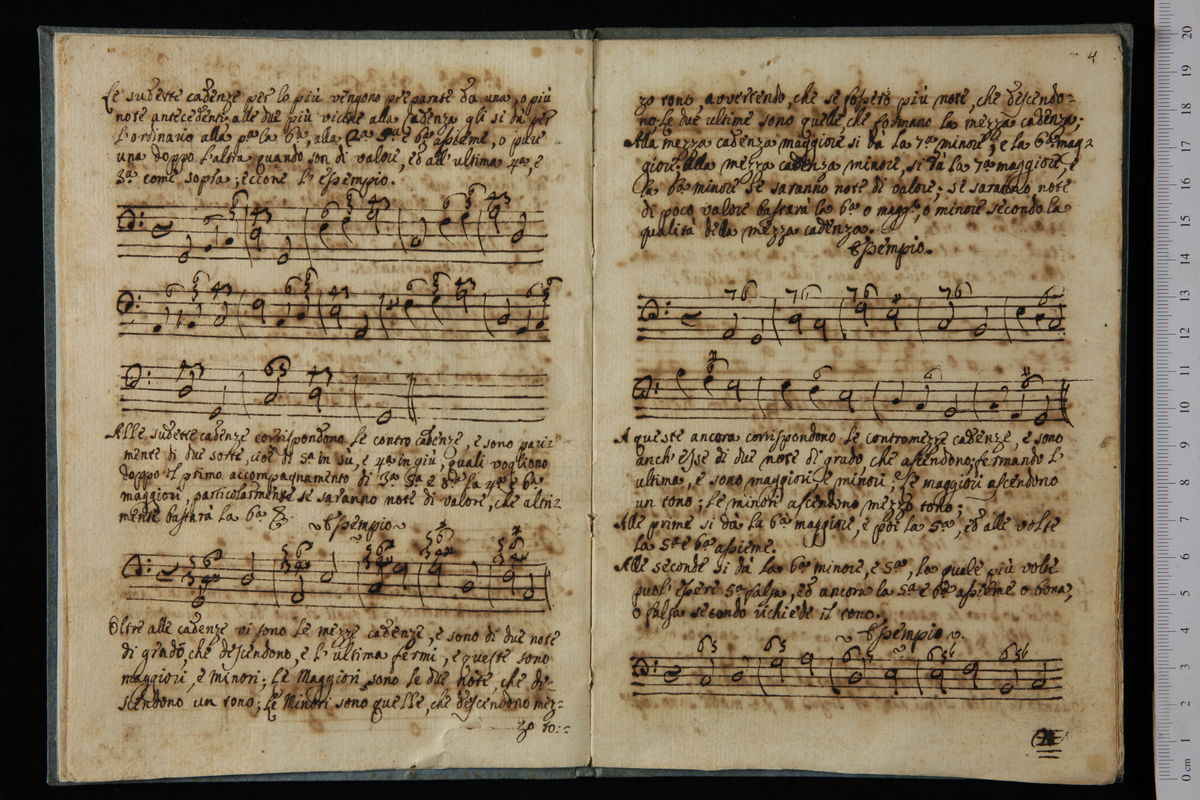 Le sudette cadenze per lo più vengono preparate da una, o più
note antecedenti; alle due più vicine alla cadenza gli si dà per
l'ordinario alla p.a la 6.a, alla 2.a 5.a e 6.a assieme, o pure
una doppo l'altra quando son di valore, ed all'ultima 4.a, e
3.a come sopra; eccone l'essempio.
Alle sudette cadenze corrispondono le contro cadenze, e sono pari=
mente di due sorte, cioè di 5.a in su, e 4.a in giù, quali vogliono
doppo il primo accompagnamento di 3.a 5.a e 8.a la 4.a e 6.a
maggiori, particolarmente se saranno note di valore, che altri=
mente bastarà la 6.a
Essempio
Oltre alle cadenze vi sono le mezze cadenze, e sono di due note
di grado, che descendono, e l'ultima fermi, e queste sono
maggiori, e minori; le Maggiori sono le due note, che de=
scendono un tono; le Minori sono quelle, che descendono mez=
zo to=
4
zo tono, avvertendo, che se fossero più note, che descendo=
no, le due ultime sono quelle, che formano la mezza cadenza;
Alla mezza cadenza maggiore si dà la 7.a minore, e la 6.a mag=
giore; alla mezza cadenza minore, si dà la 7.a maggiore, e
la 6.a minore se saranno note di valore; se saranno note
di poco valore bastarà la 6.a o magg.e, o minore secondo la
qualità della mezza cadenza.
Essempio.
A queste ancora corrispondono le contromezze cadenze, e sono
anch'esse di due note di grado che ascendono, fermando l'
ultima, e sono maggiori, e minori; le maggiori ascendono
un tono; le minori ascendono mezzo tono;
Alle prime si dà la 6.a maggiore, e poi la 5.a, ed alle volte
la 5.a e 6.a assieme.
Alle seconde si dà la 6.a minore, e 5.a, la quale più volte
puol essere 5.a falsa, ed ancora la 5.a e 6.a assieme o bona,
o falsa secondo richiede il tono.
Essempio